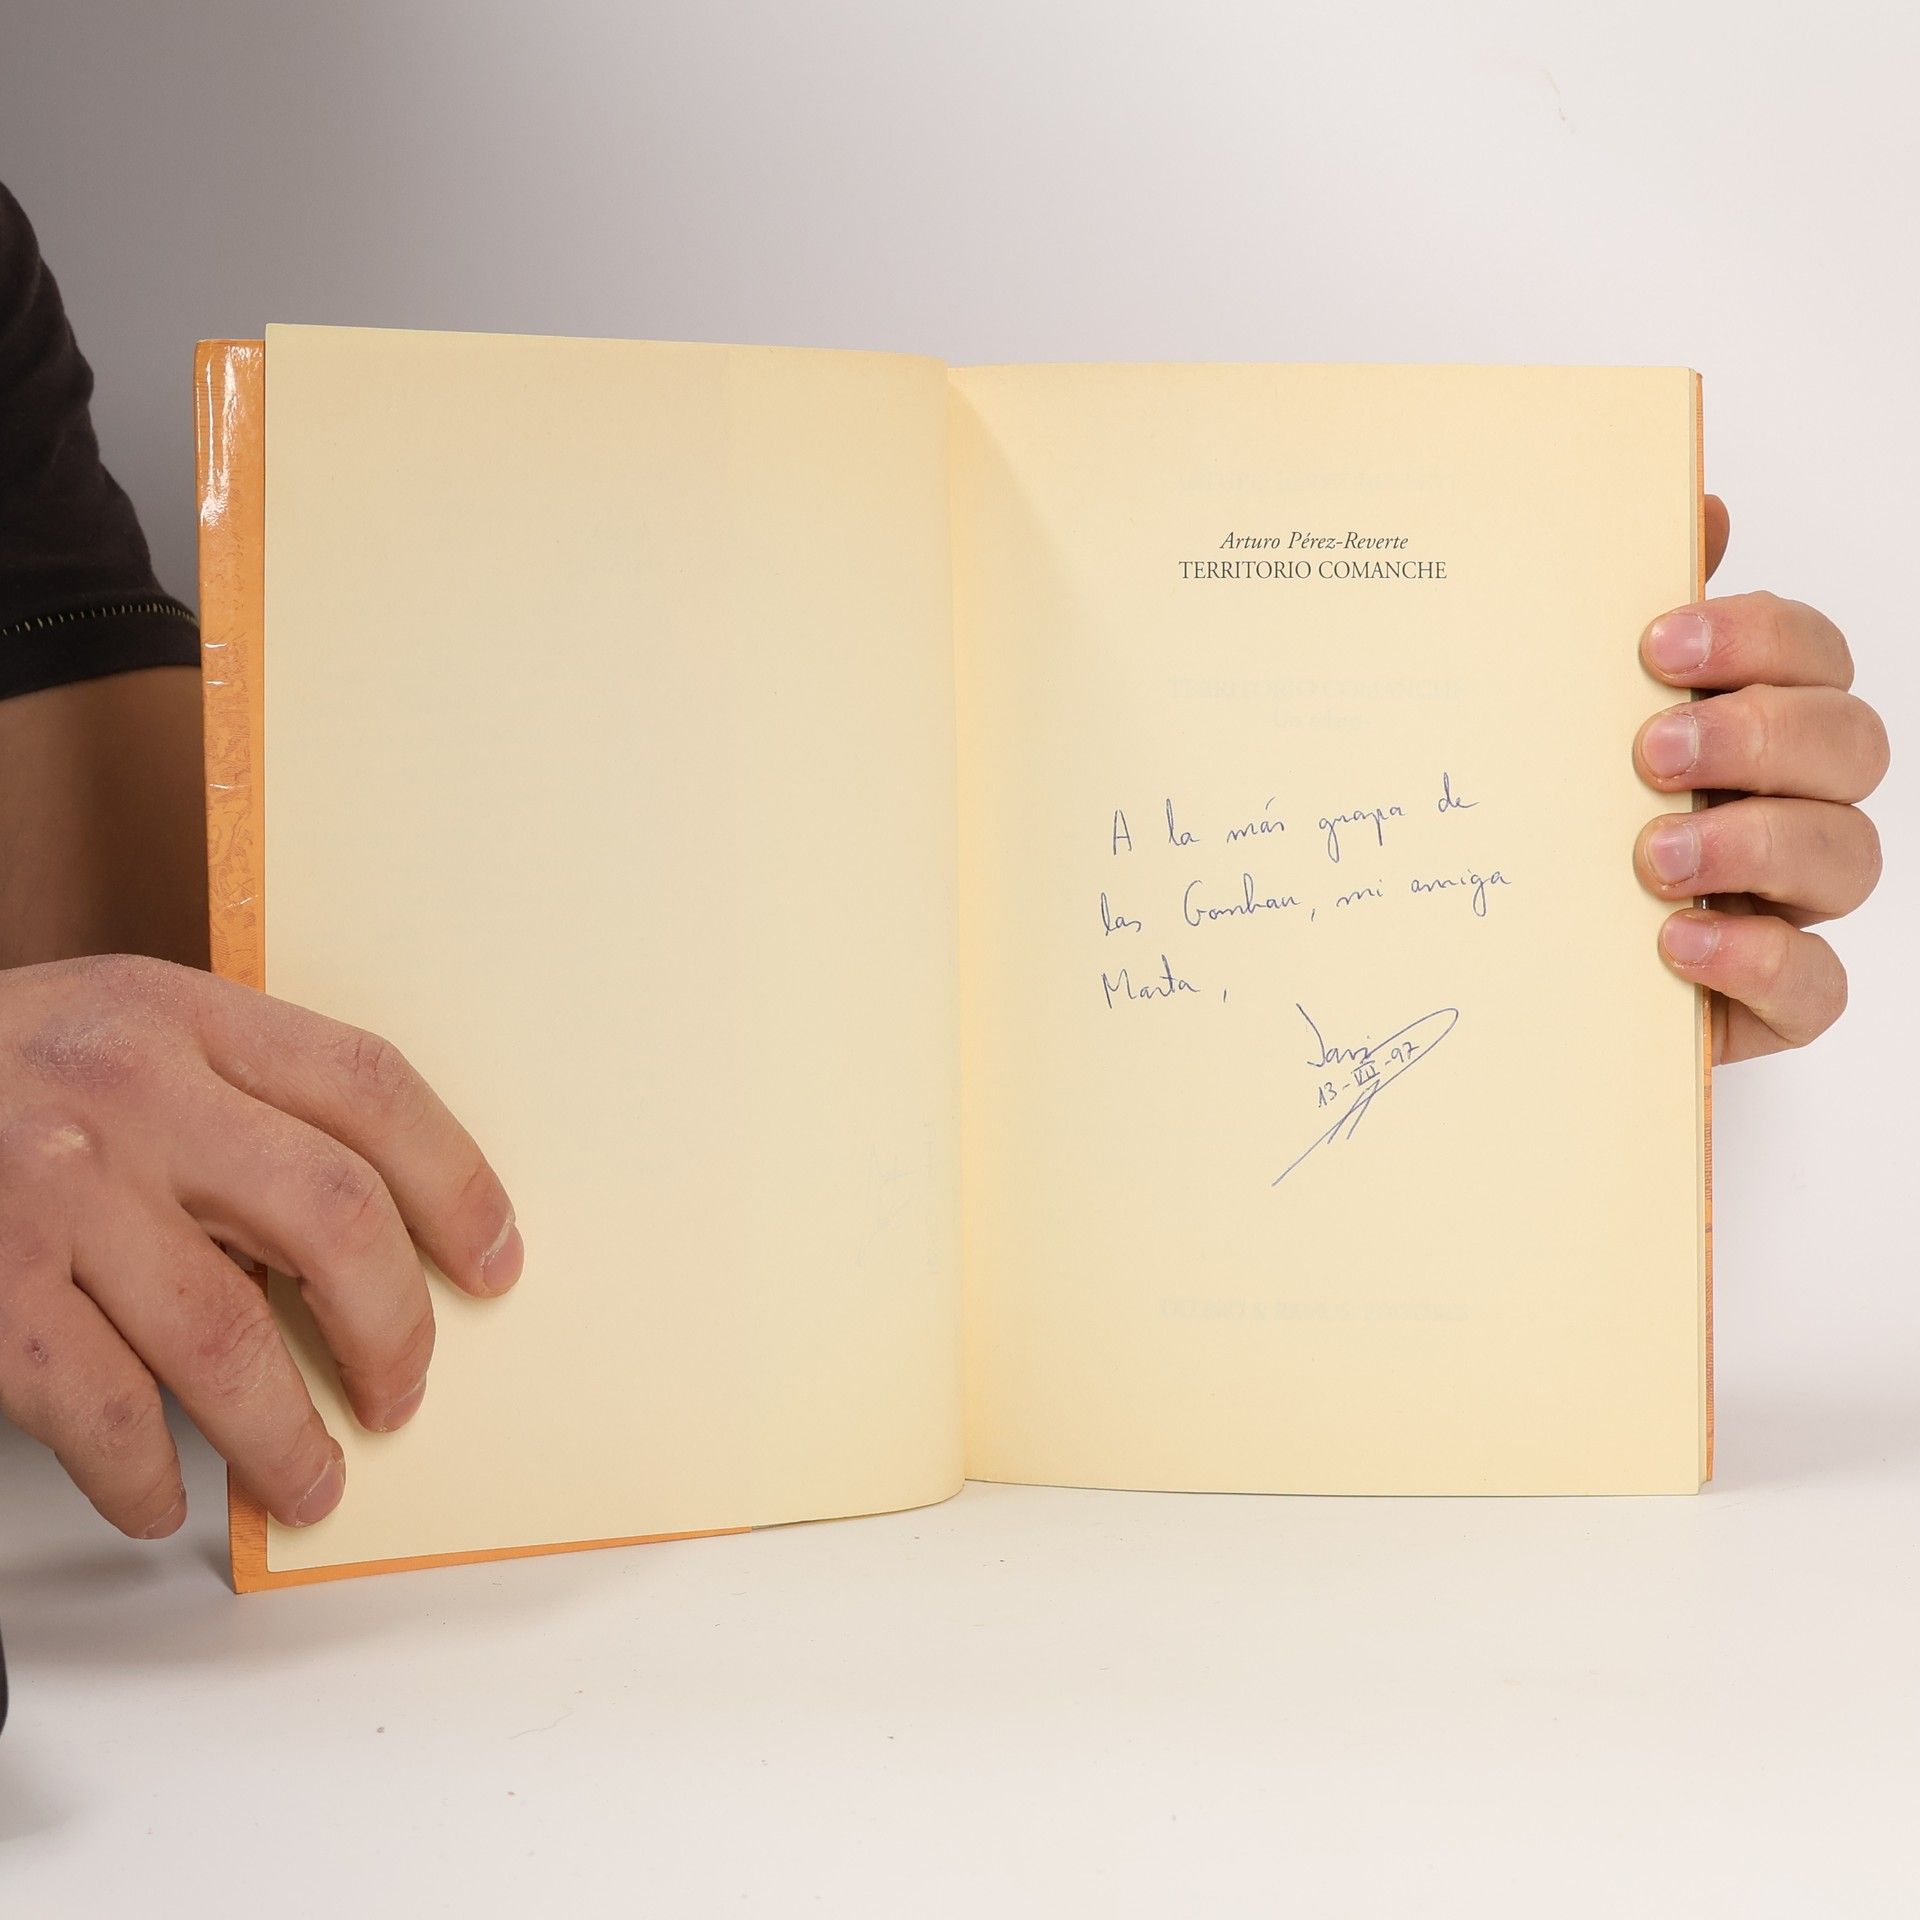 Arturo Pérez-Reverte
TERRITORIO COMANCHE
A la más guapa de
las, mi amiga
Marta,
Javi
13-VII-97